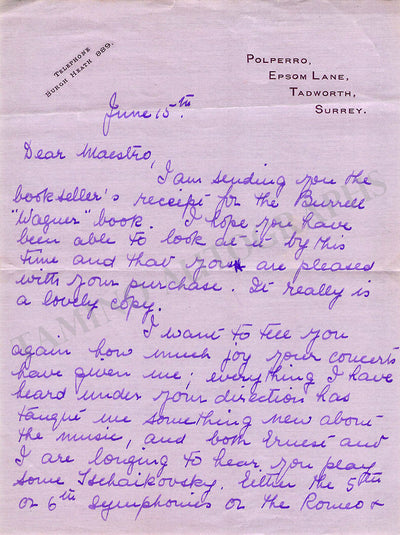 TELEPHONE
BURGH HEATH 889.
POLPERRO,
EPSOM LANE,
TADWORTH,
SURREY.
June 15th.
Dear Maestro,
I am sending you the
bookseller's receipt for the Burrell
"Wagner" book. I hope you have
been able to look at it by this
time and that you are pleased
with your purchase. It really is
a lovely copy.
I want to tell you
again how much joy your concerts
have given me; everything I have
heard under your direction has
taught me something new about
the music, and both Ernest and
I are longing to hear you play
some Tschaikovsky. Either the 5th
or 6th Symphonies or the Romeo +
TAMINO AUTOGRAPHS